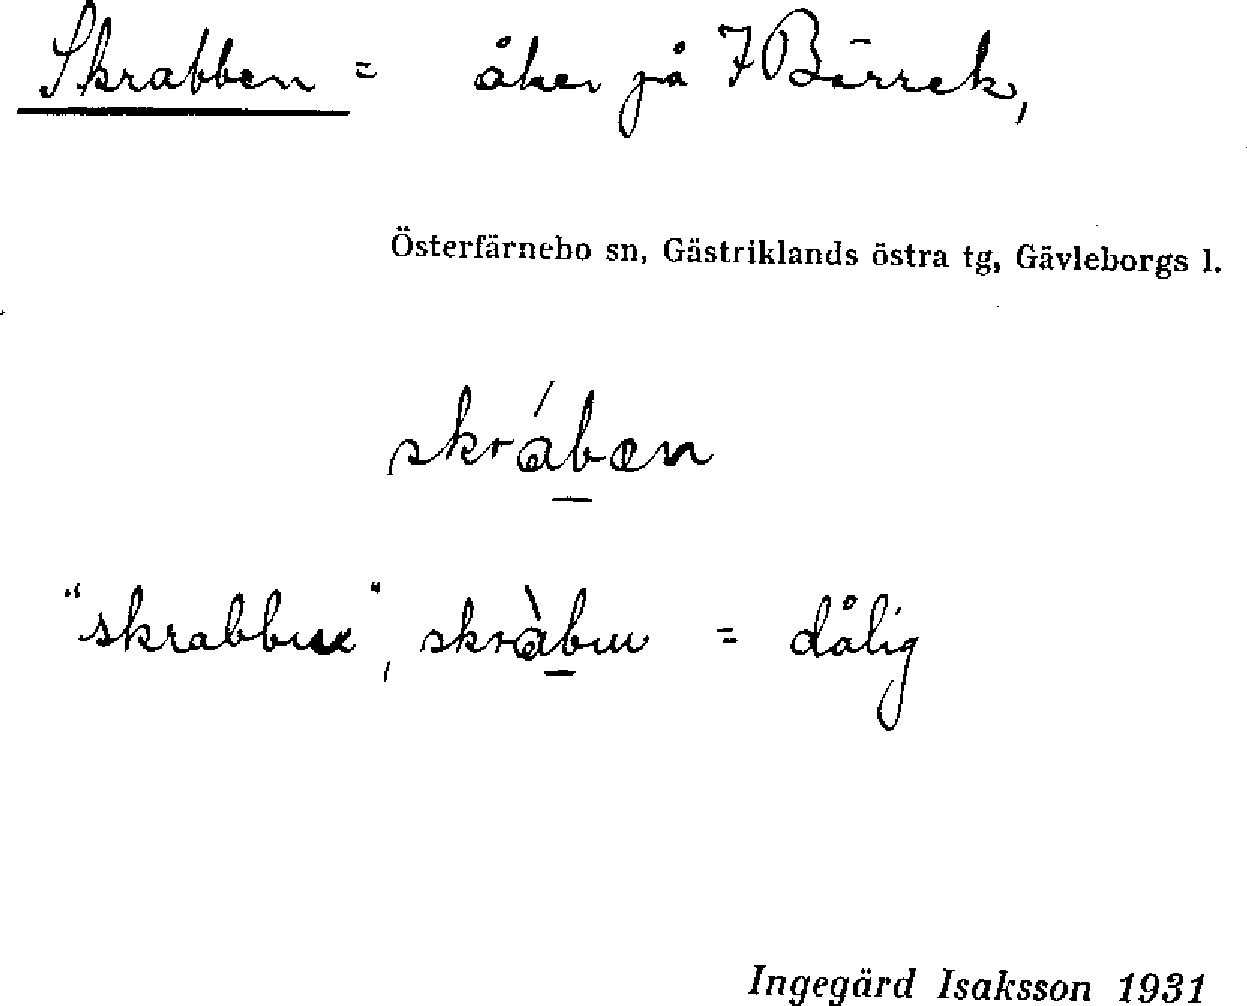 Skrabben = åker på 7 Bärrek,
Österfärnebo sn, Gästriklands östra tg, Gävleborgs l.
skrában
"skrabbux", skràbuu = dålig
Ingegärd Isaksson 1931